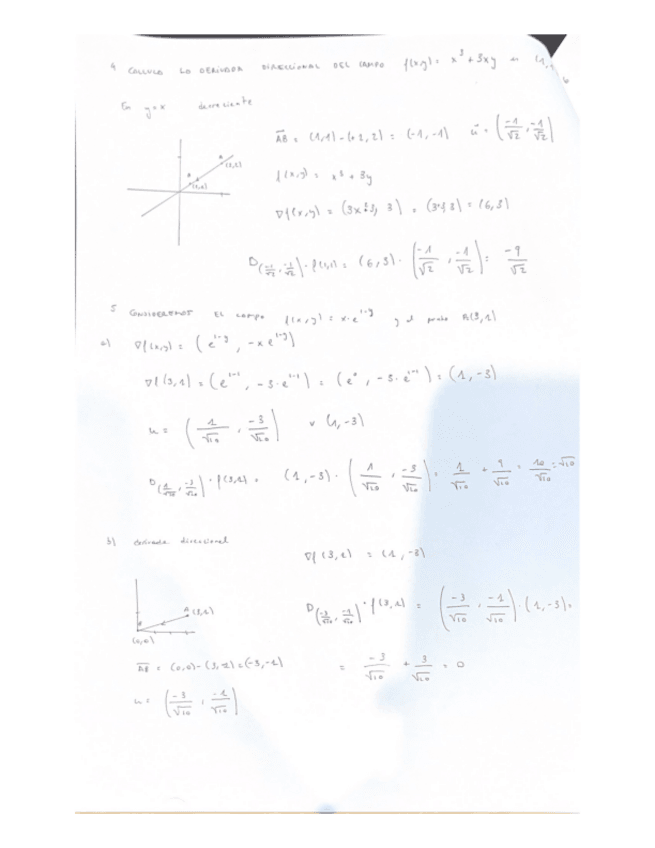 4 CALCULA LA DERIVADA DIRECCIONAL DEL CAMPO f(x,y) = x³ + 3xy
En y=x decreciente
AB = (1,1) - (2,2) = (-1,-1) u = (-1/√2, -1/√2)
A (2,2)
(1,1)
f(x,y) = x³ + 3y
∇f(x,y) = = (6,3)
D(-1/√2, -1/√2) · f(1,1) = (6,3) · (-1/√2, -1/√2) = -9/√2
5 CONSIDEREMOS EL CAMPO f(x,y) = x·e^(1-y) y el punto A(3,1)
a) ∇f(x,y) = (e^(1-y), -x e^(1-y))
∇f(3,1) = (e^(1-1), -3·e^(1-1)) = (e⁰, -3·e^(1-1)) = (1,-3)
u = (1/√10, -3/√10) v (1,-3)
D(1/√10, -3/√10) · f(3,1) = (1,-3) · (1/√10, -3/√10) = 1/√10 + 9/√10 = 10/√10 = √10
b) derivada direccional
∇f(3,1) = (1,-3)
A (3,1)
(0,0)
D(-3/√10, -1/√10) · f(3,1) = (-3/√10, -1/√10) · (1,-3) =
AB = (0,0) - (3,1) = (-3,-1)
= -3/√10 + 3/√10 = 0
u = (-3/√10, -1/√10)